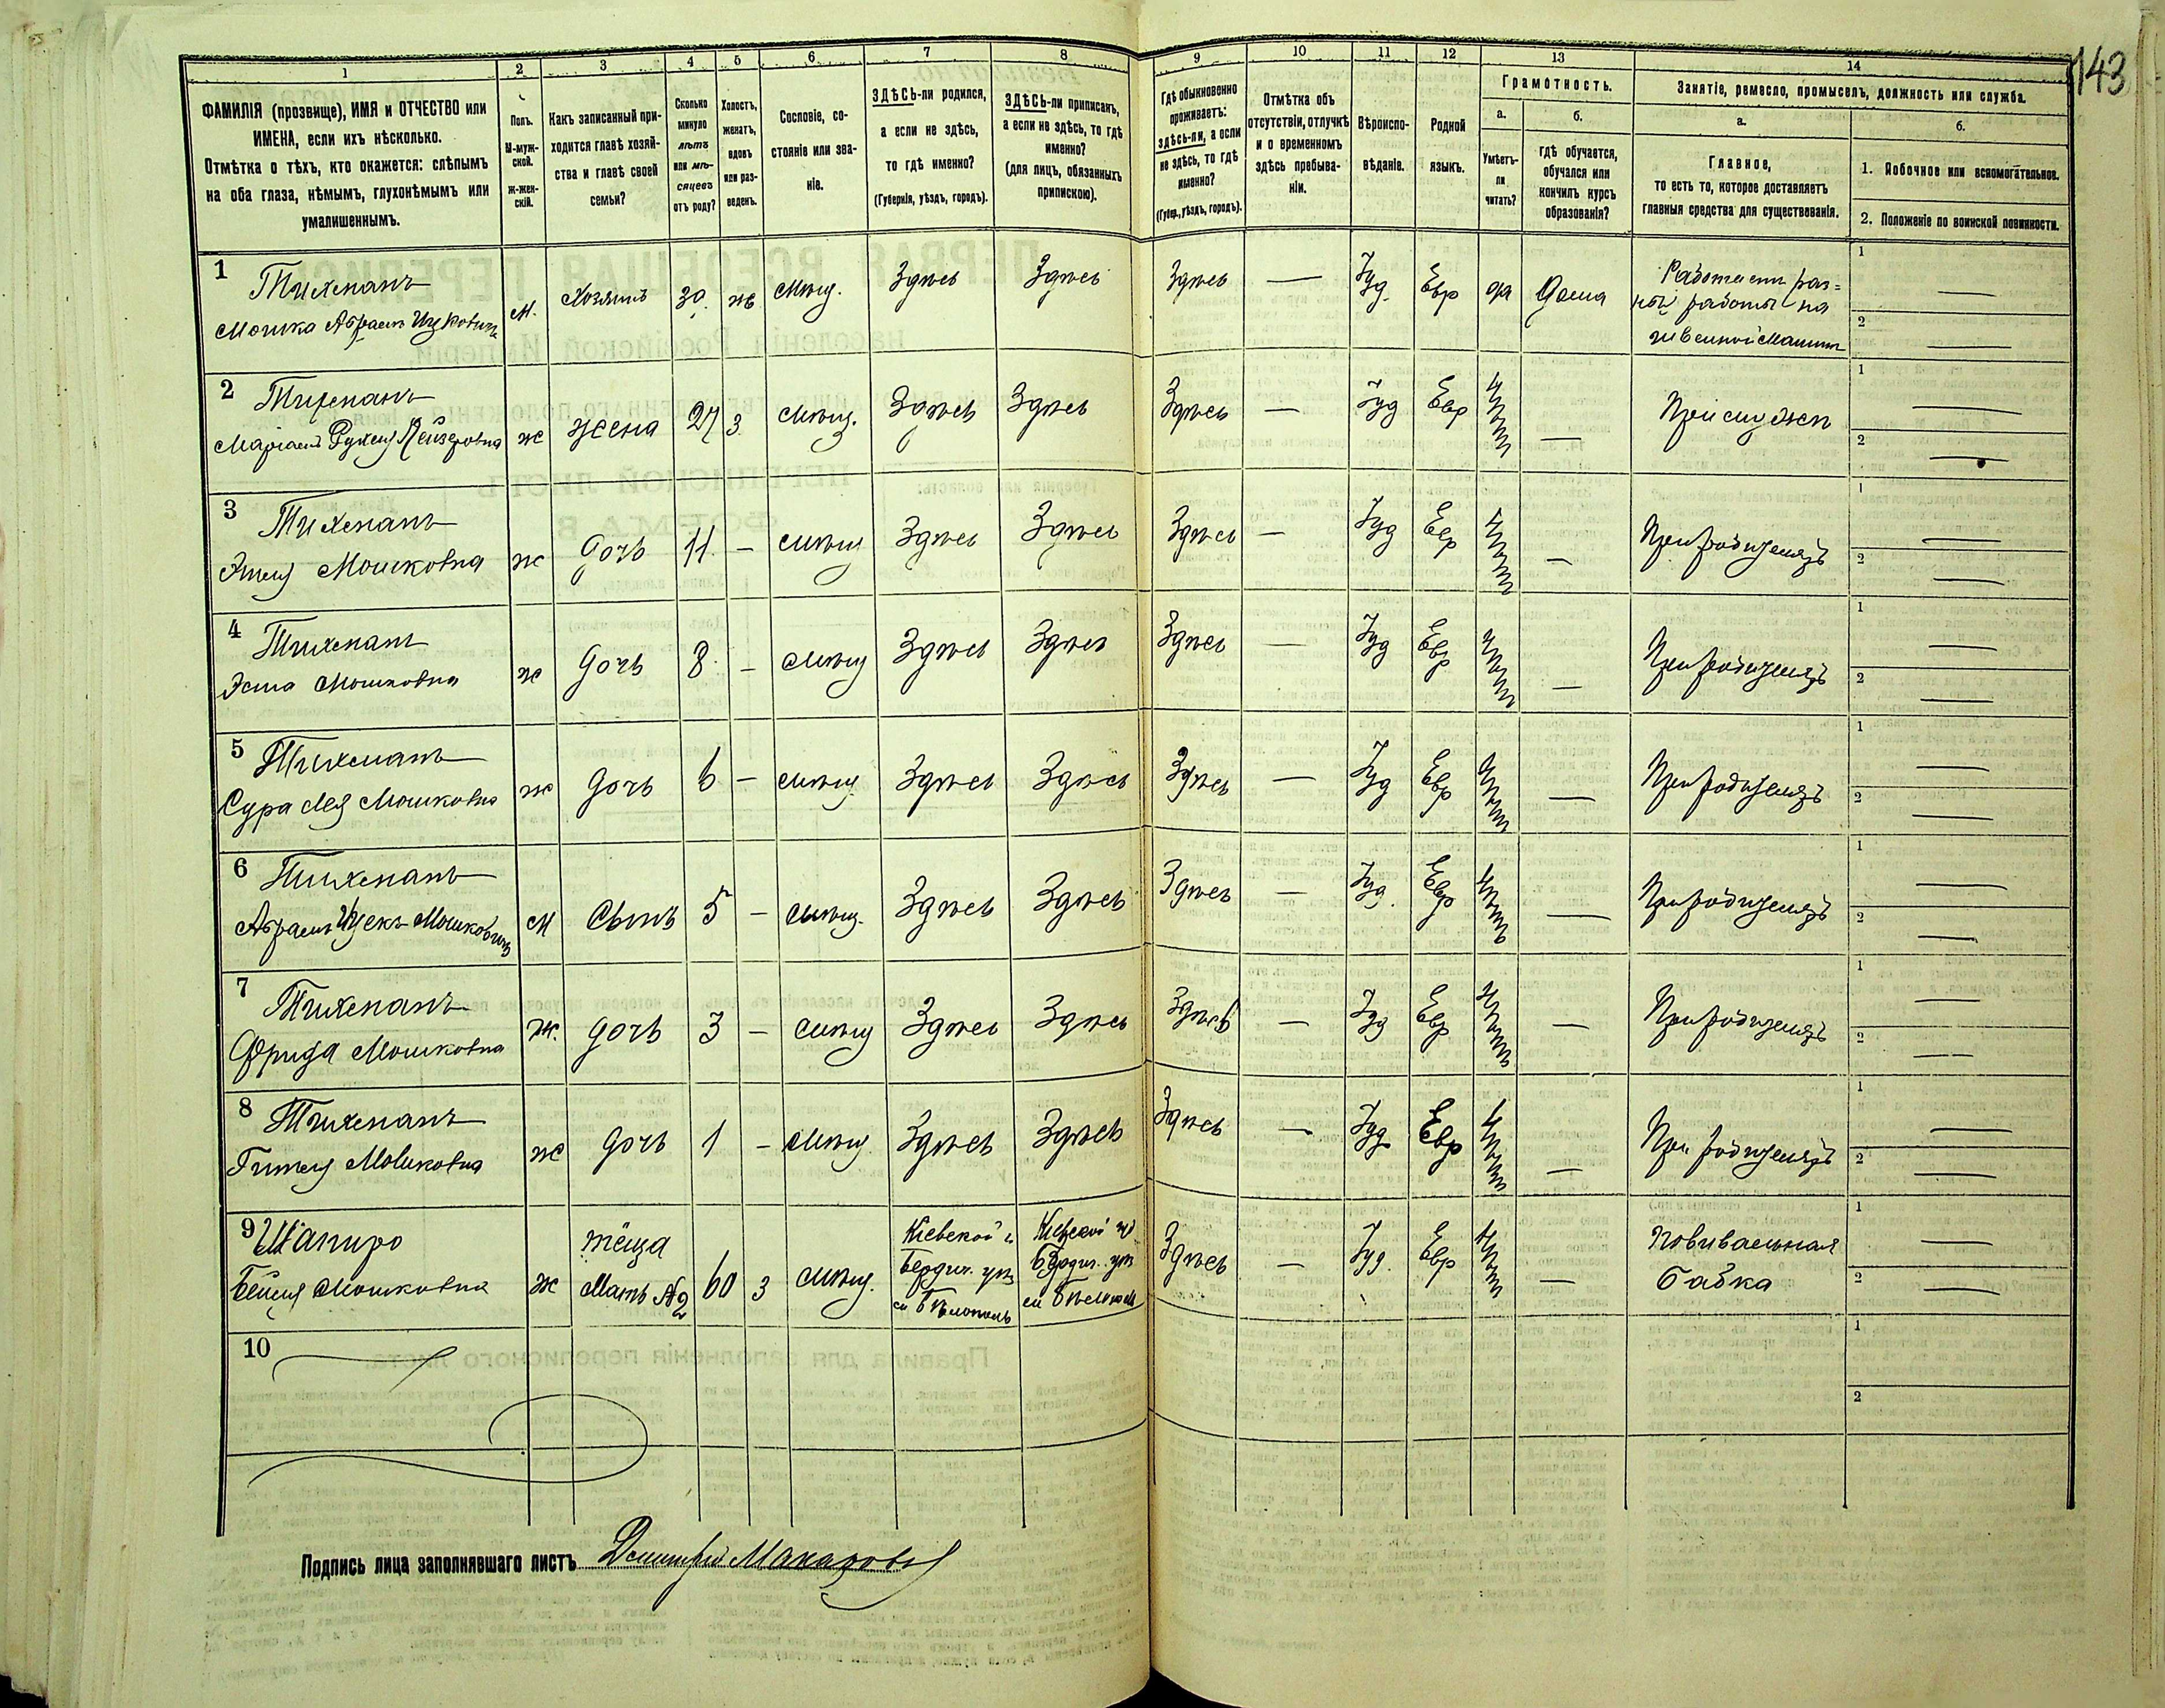 143
1 2 3 4 5 6 7 8 9 10 11 12 13 14
ФАМИЛІЯ (прозвище), ИМЯ и ОТЧЕСТВО или
ИМЕНА, если ихъ нѣсколько.
Отмѣтка о тѣхъ, кто окажется: слѣпымъ
на оба глаза, нѣмымъ, глухонѣмымъ или
умалишеннымъ.
Полъ.
М-муж-
ской.
Ж-жен-
скій.
Какъ записанный при-
ходится главѣ хозяй-
ства и главѣ своей
семьи?
Сколько
минуло
лѣтъ
или мѣ-
сяцевъ
отъ роду?
Холостъ,
женатъ,
вдовъ
или раз-
веденъ.
Сословіе, со-
стояніе или зва-
ніе.
ЗДѢСЬ-ли родился,
а если не здѣсь,
то гдѣ именно?
(Губернія, уѣздъ, городъ).
ЗДѢСЬ-ли приписанъ,
а если не здѣсь, то гдѣ
именно?
(для лицъ, обязанныхъ
припискою).
Гдѣ обыкновенно
проживаетъ:
здѣсь-ли, а если
не здѣсь, то гдѣ
именно?
(Губер., уѣздъ, городъ).
Отмѣтка объ
отсутствіи, отлучкѣ
и о временномъ
здѣсь пребыва-
ніи.
Вѣроиспо-
вѣданіе.
Родной
языкъ.
Грамотность.
а.
Умѣетъ-
ли
читать?
б.
гдѣ обучается,
обучался или
кончилъ курсъ
образованія?
Занятіе, ремесло, промыселъ, должность или служба.
а.
Главное,
то есть то, которое доставляетъ
главныя средства для существованія.
б.
1. Побочное или вспомогательное.
2. Положеніе по воинской повинности.
1 Тихманъ
Мошка Абрамъ Ицковичъ
М. Хозяинъ 30 ж мѣщ. Здѣсь Здѣсь Здѣсь — Іуд. Евр да Дома
Работаетъ раз=
ныя работы на
швейной Машинѣ
1 —
2 —
2 Тихманъ
Маріамъ Лейзеровна
ж жена 27 з мѣщ. Здѣсь Здѣсь Здѣсь — Іуд Евр нѣтъ — При мужѣ
1 —
2 —
3 Тихманъ
Этля Мошковна
ж дочь 11 — мѣщ Здѣсь Здѣсь Здѣсь — Іуд Евр нѣтъ — При родителяхъ
1 —
2 —
4 Тихманъ
Эста Мошковна
ж дочь 8 — мѣщ Здѣсь Здѣсь Здѣсь — Іуд Евр нѣтъ — При родителяхъ
1 —
2 —
5 Тихманъ
Сура Лея Мошковна
ж дочь 6 — мѣщ Здѣсь Здѣсь Здѣсь — Іуд Евр нѣтъ — При родителяхъ
1 —
2 —
6 Тихманъ
Абрамъ Ицекъ Мошковичъ
М Сынъ 5 — мѣщ. Здѣсь Здѣсь Здѣсь — Іуд. Евр нѣтъ — При родителяхъ
1 —
2 —
7 Тихманъ
Фрида Мошковна
ж. дочь 3 — мѣщ Здѣсь Здѣсь Здѣсь — Іуд Евр нѣтъ — При родителяхъ
1 —
2 —
8 Тихманъ
Гитля Мошковна
ж дочь 1 — мѣщ. Здѣсь Здѣсь Здѣсь — Іуд Евр нѣтъ — При родителяхъ
1 —
2 —
9 Шапиро
Бейля Мошковна
ж
тёща
Мать №2
60 з мѣщ.
Кіевской г.
Бердич. уѣз
м Бѣлополь
Кіевской г.
Бердич. уѣз
м Бѣлополь
Здѣсь — Іуд. Евр нѣтъ —
Повивальная
бабка
1 —
2 —
10
1
2
Подпись лица заполнявшаго листъ Дмитрій Макаровъ